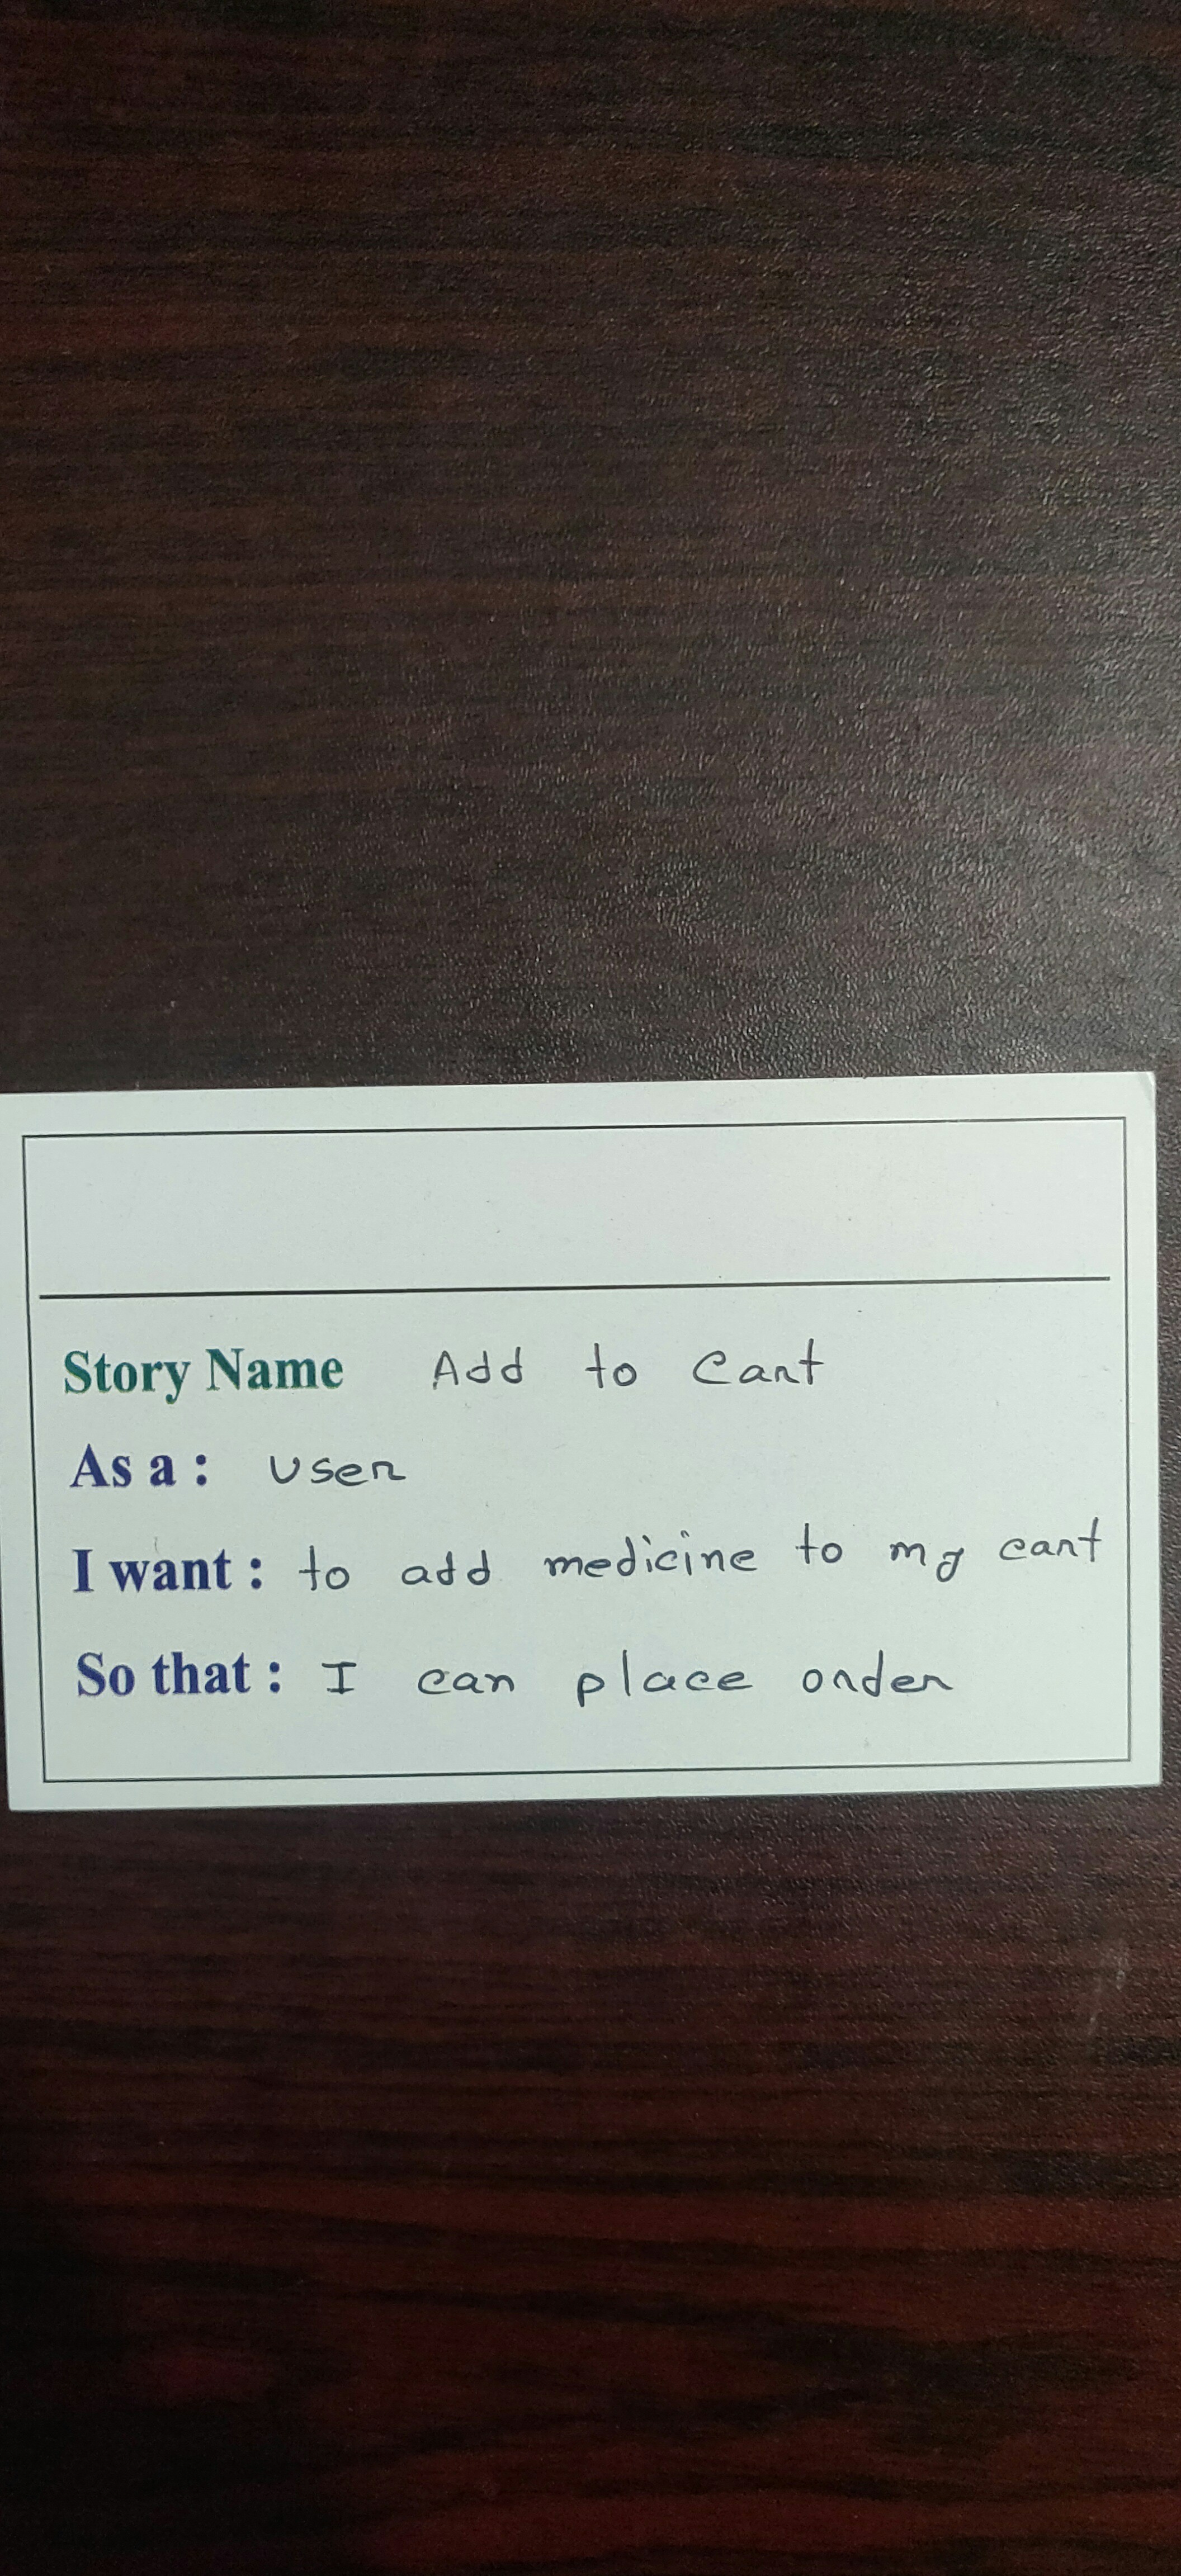 Story Name Add to Cart
As a : user
I want : to add medicine to my cart
So that : I can place order